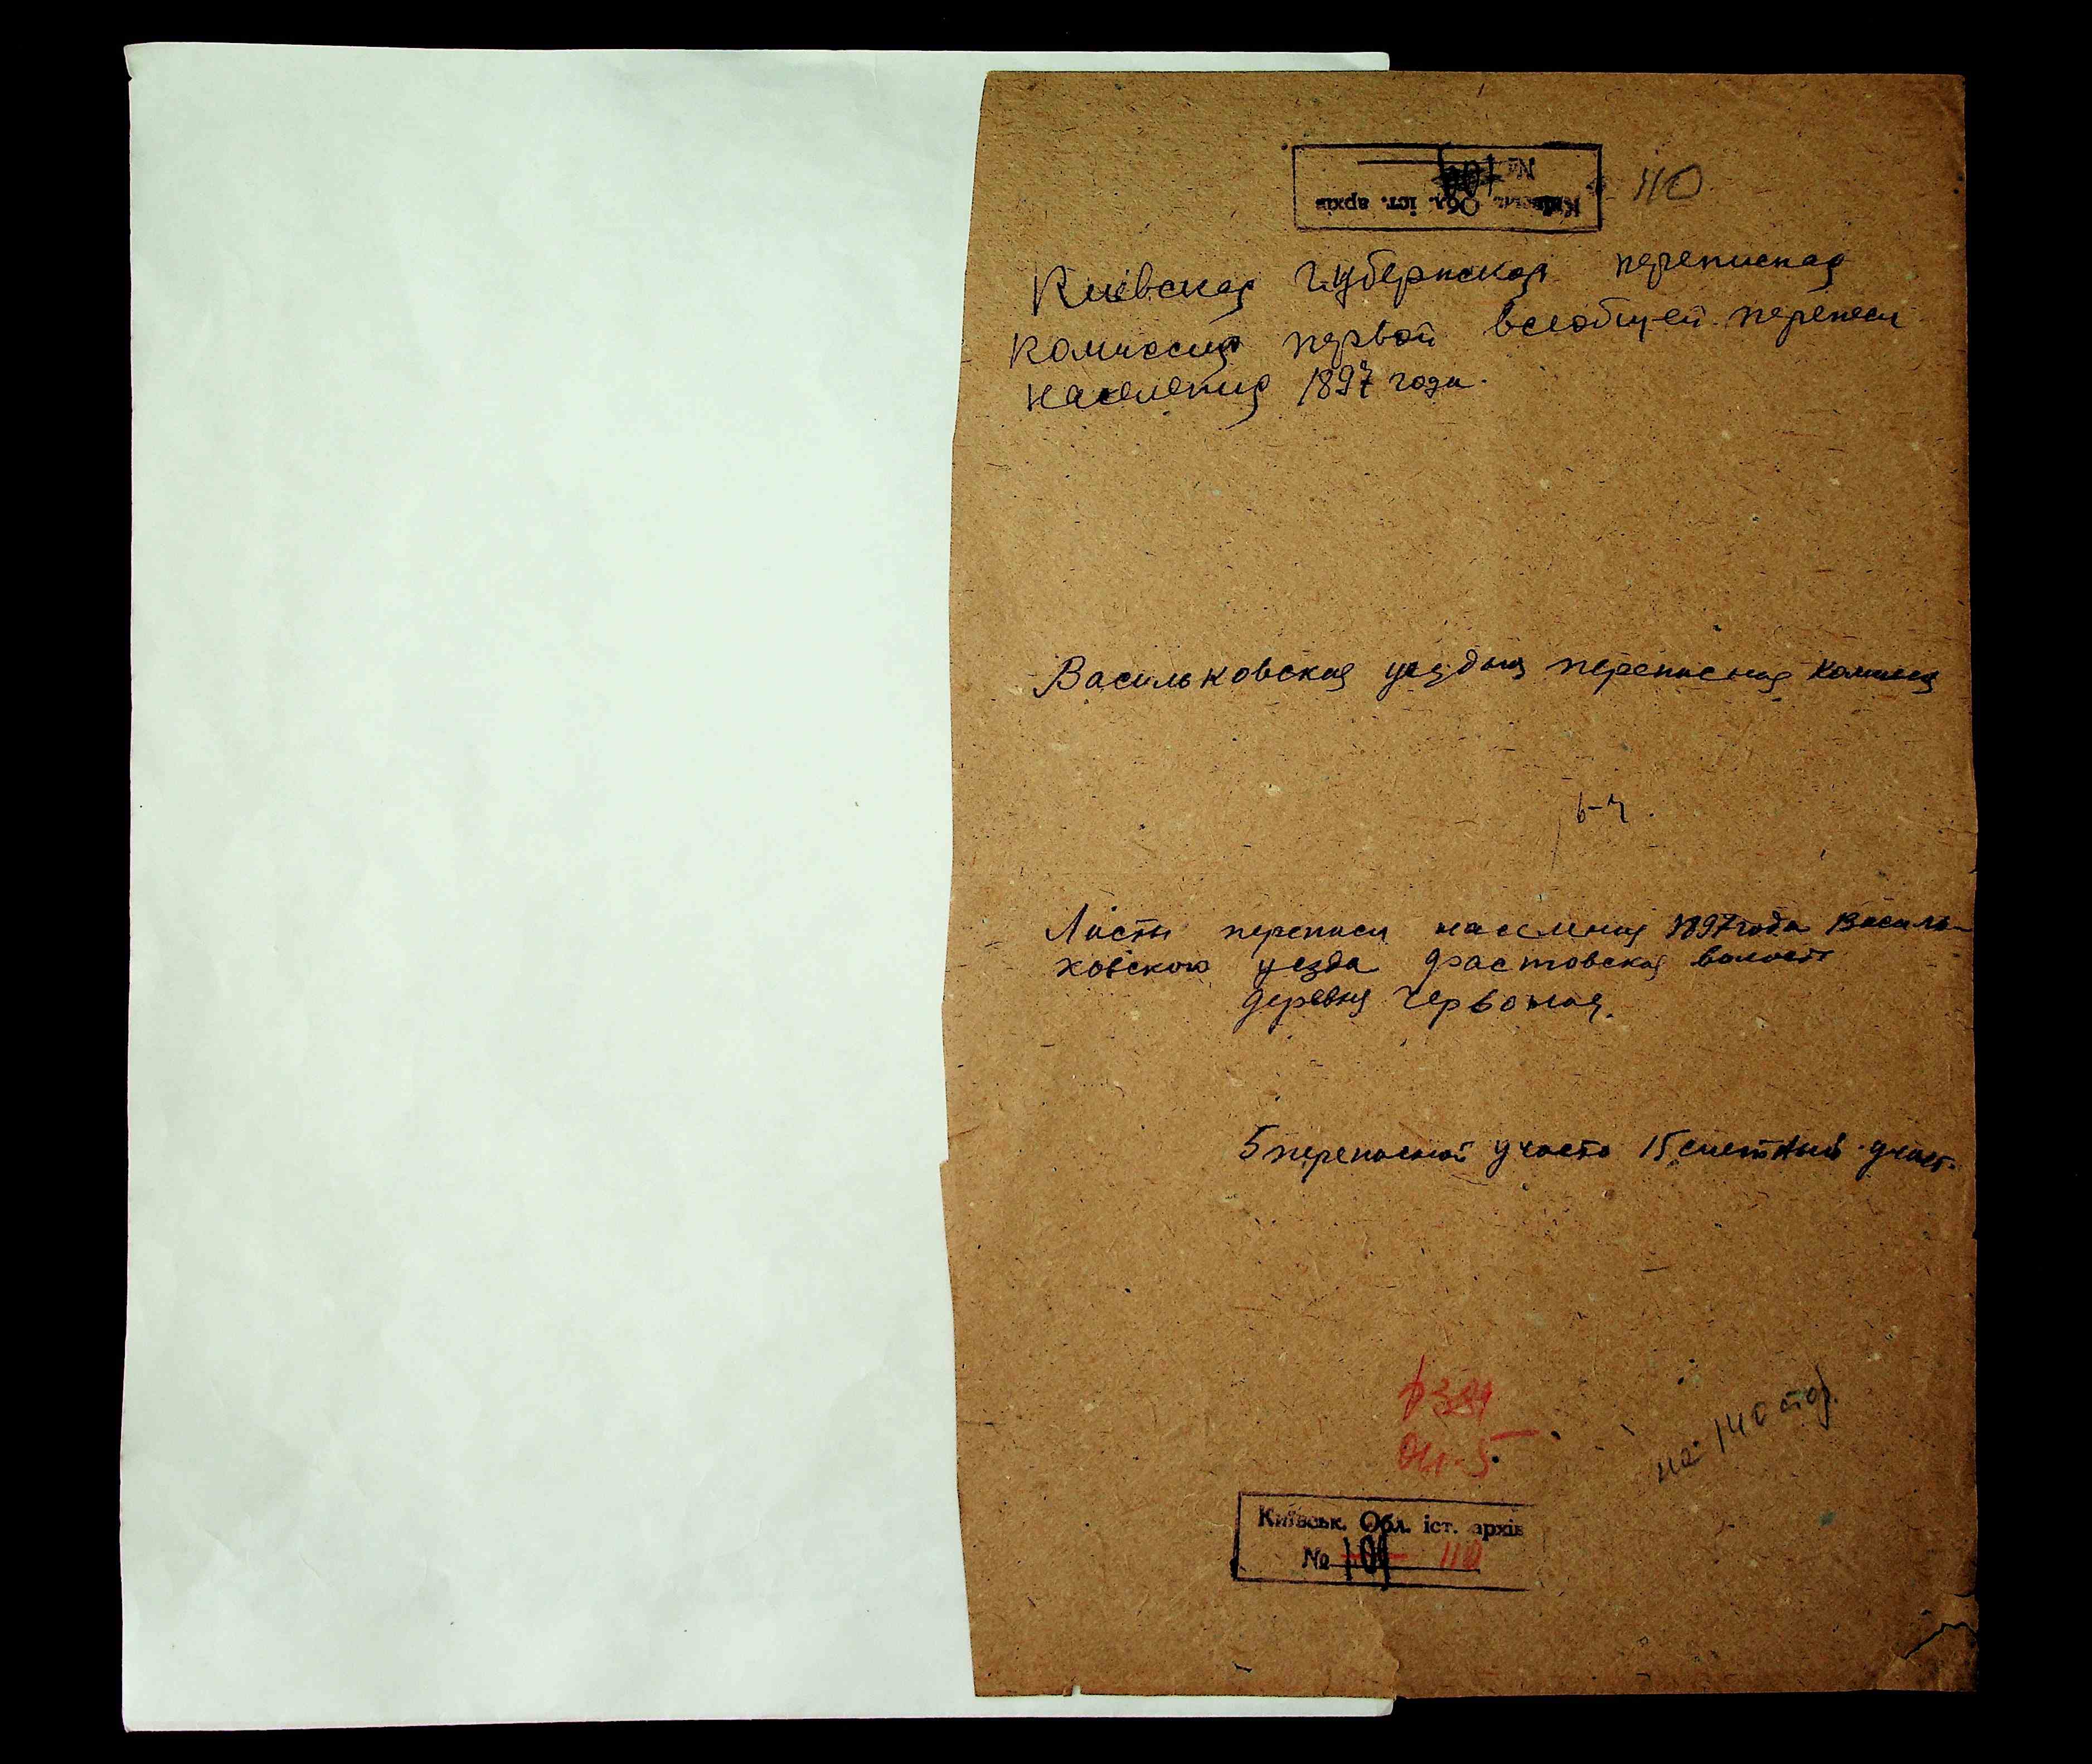 № 109
Київськ. Обл. іст. архів
110
Киевская Губернская переписная
комиссия первой всеобщей переписи
населения 1897 года.
Васильковская уездная переписная комиссия
6-4.
Листы переписи населения 1897 года Василь-
ковского уезда Фастовская волость
деревня Червоная.
5 переписной участо 15 счетный участ.
Ф 384
Оп. 5
на 140 стор.
Київськ. Обл. іст. архів
№ 109 110